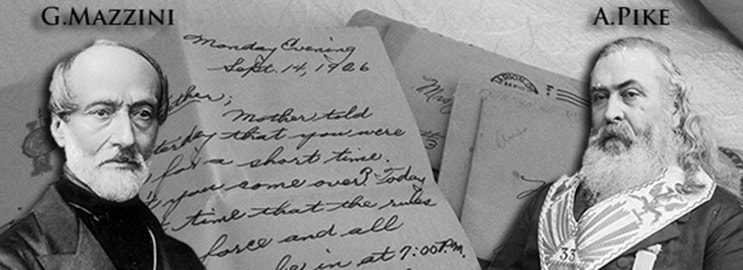 G.MAZZINI
A.PIKE
Monday Evening
Sept. 14, 1926
ther;
Mother told
terday that you were
for a short time.
you come over? Today
time that the rules
force and all
be in at 7:00 P.M.
33